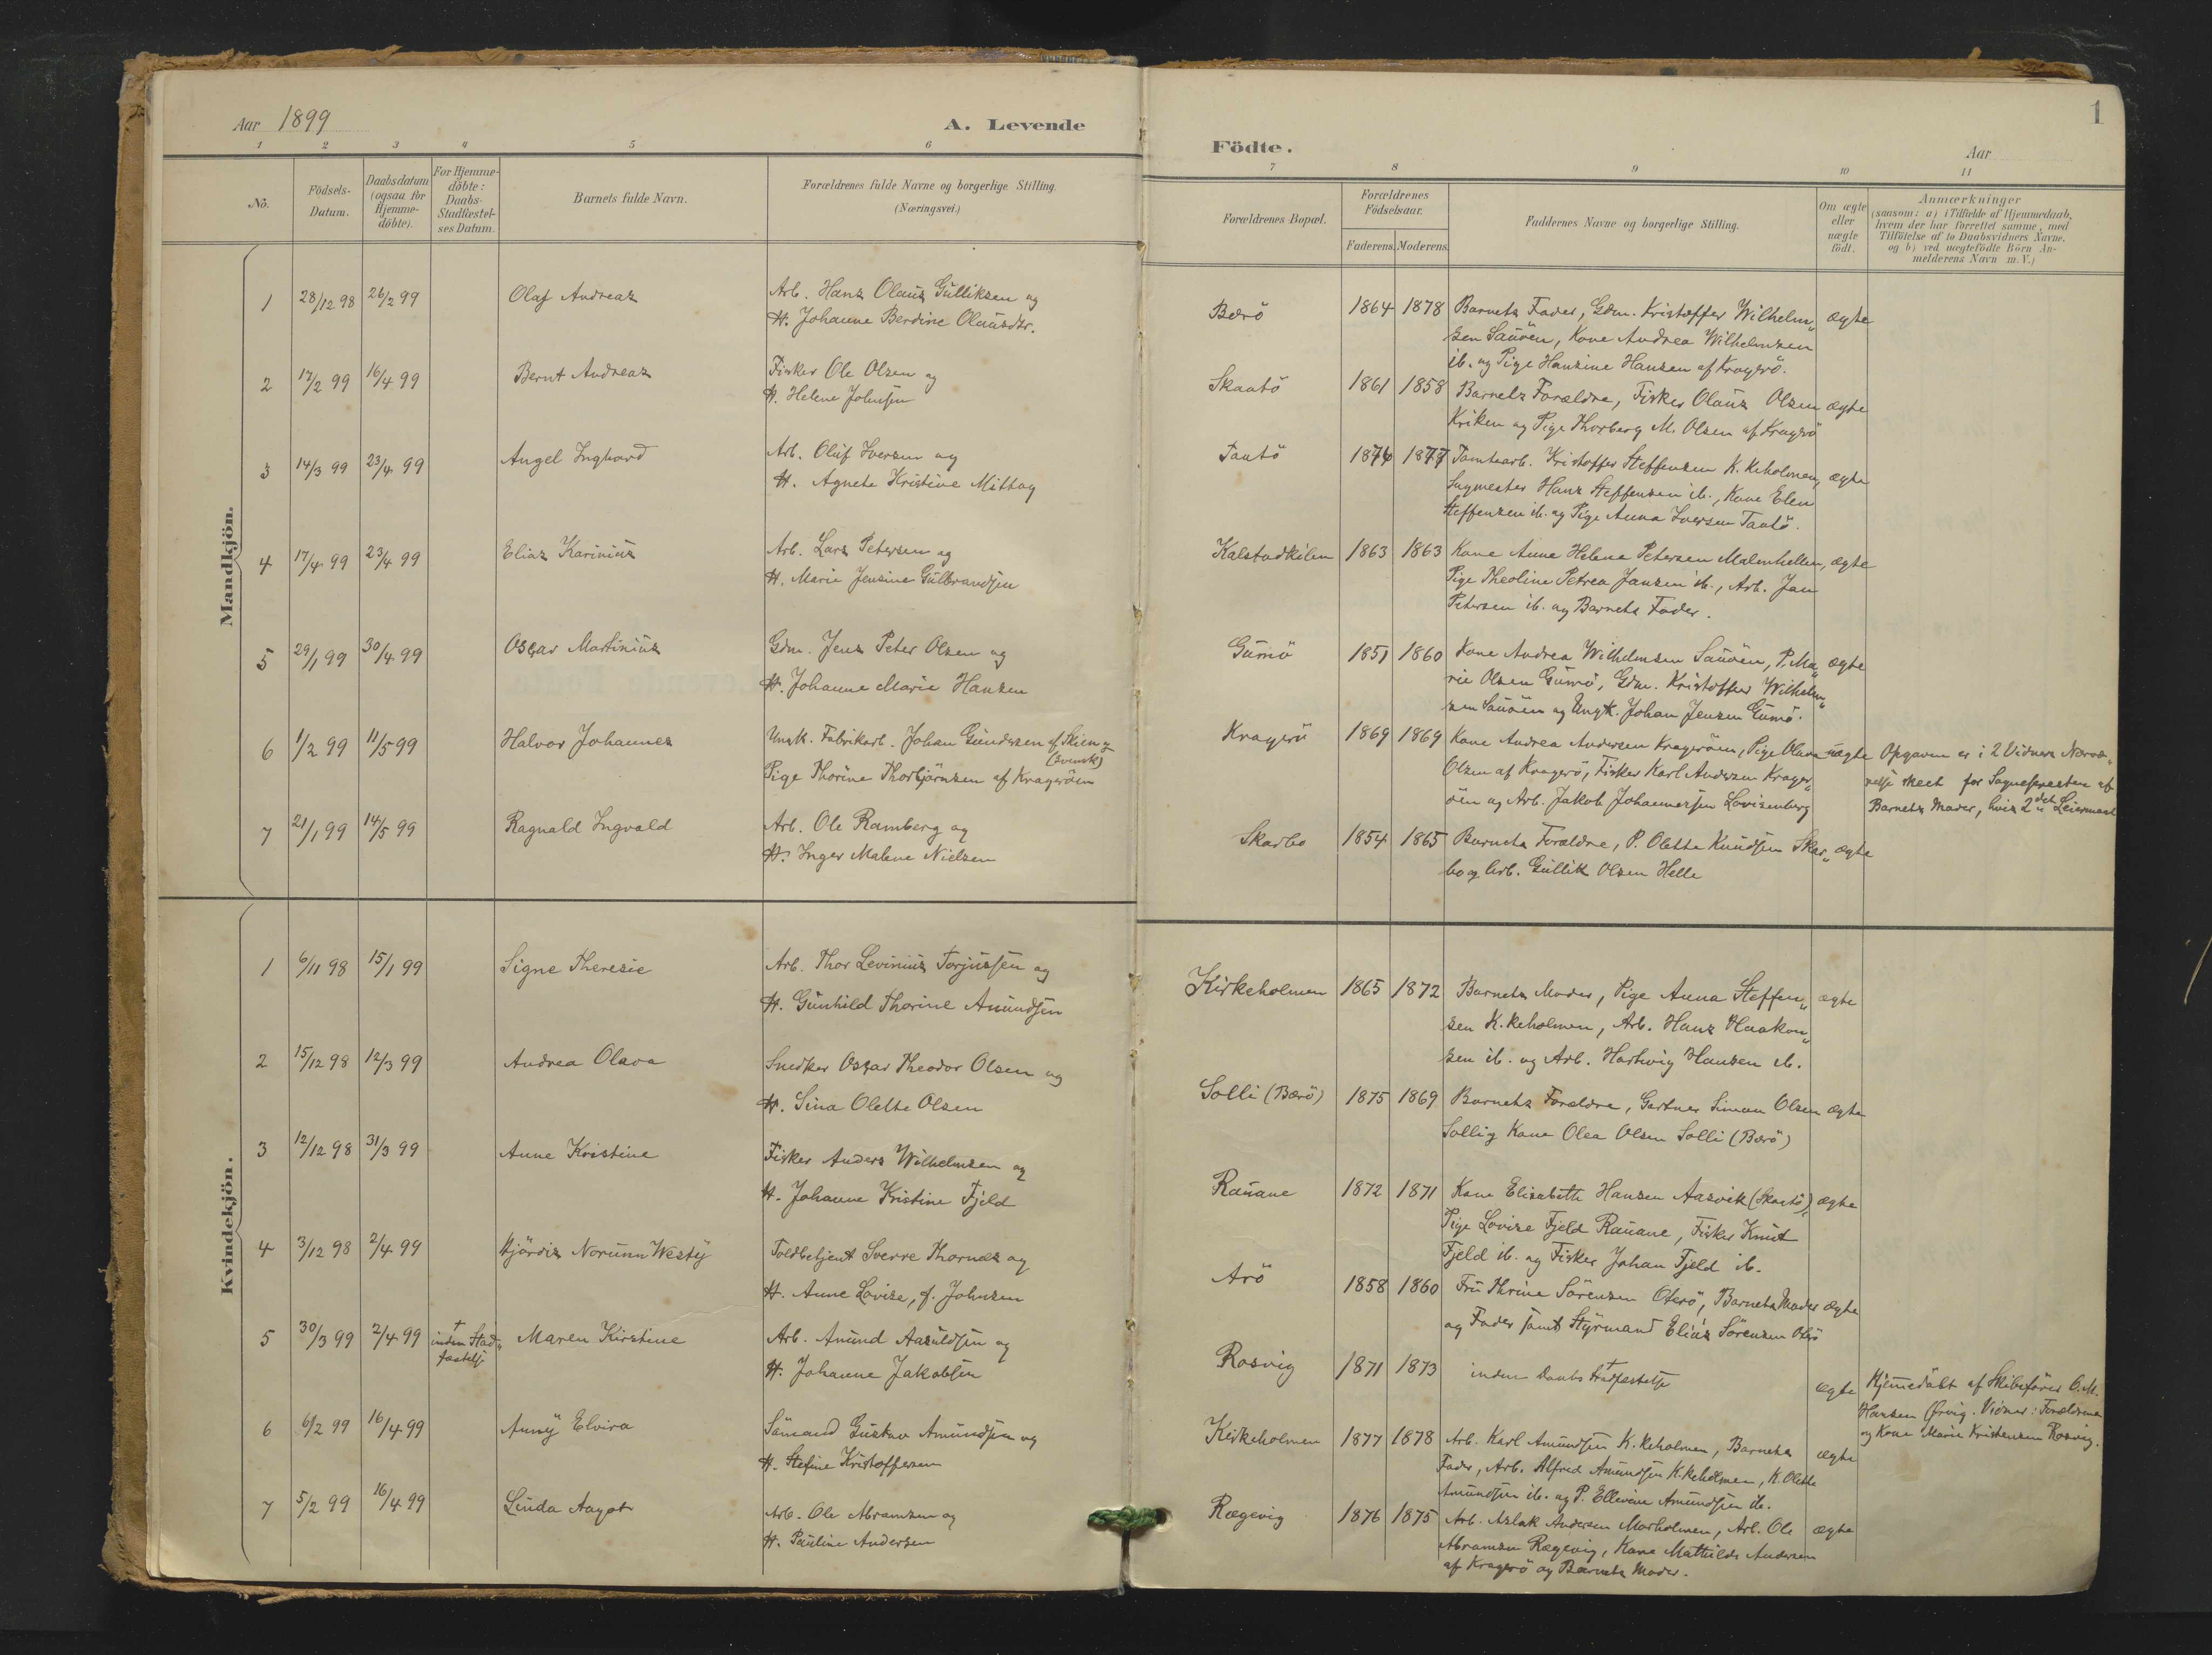 Aar 1899
A. Levende
1 2 3 4 5 6
No.
Födsels-Datum.
Daabsdatum (ogsaa for Hjemme-döbte).
For Hjemme-döbte: Daabs-Stadfæstel-ses Datum.
Barnets fulde Navn.
Forældrenes fulde Navne og borgerlige Stilling.
(Næringsvei.)
Mandkjön.
1 28/12 98 26/2 99 Olaf Andreas Arb. Hans Olaus Gulliksen og
H. Johanne Berdine Olausdtr.
2 17/2 99 16/4 99 Bernt Andreas Fisker Ole Olsen og
H. Helene Johnsen
3 14/3 99 23/4 99 Angel Ingvard Arb. Oluf Iversen og
H. Agnete Kristine Mittag
4 17/4 99 23/4 99 Elias Karinius Arb. Lars Petersen og
H. Marie Jensine Gulbrandsen
5 29/1 99 30/4 99 Oscar Martinius Gdm. Jens Peter Olsen og
H. Johanne Marie Hansen
6 1/2 99 11/5 99 Halvor Johannes Ungk. Fabrikarb. Johan Gundersen af Skien og
(svensk)
Pige Thorine Thorbjörnsen af Krageröen
7 21/1 99 14/5 99 Ragnald Ingvald Arb. Ole Ramberg og
H. Inger Malene Nielsen
Kvindekjön.
1 6/11 98 15/1 99 Signe Theresie Arb. Thor Levinius Torjussen og
H. Gunhild Thorine Amundsen
2 15/12 98 12/3 99 Andrea Olava Snedker Oscar Theodor Olsen og
H. Sina Olette Olsen
3 12/12 98 31/3 99 Anne Kristine Fisker Anders Wilhelmsen og
H. Johanne Kristine Fjeld
4 3/12 98 2/4 99 Hjördis Norunn Westy Toldbetjent Sverre Thornes og
H. Anne Lovise, f. Johnsen
5 30/3 99 2/4 99 † inden Stad„fæstelse Maren Kirstine Arb. Amund Aasuldsen og
H. Johanne Jakobsen
6 6/2 99 16/4 99 Anny Elvira Sömand Gustav Amundsen og
H. Stefine Kristoffersen
7 5/2 99 16/4 99 Linda Aagot Arb. Ole Abramsen og
H. Pauline Andersen
1
Födte.
Aar
7 8 9 10 11
Forældrenes Bopæl.
Forældrenes Födselsaar.
Faderens. Moderens.
Faddernes Navne og borgerlige Stilling.
Om ægte eller uægte födt.
Anmærkninger
(saasom: a) i Tilfælde af Hjemmedaab,
hvem der har forrettet samme, med
Tilföielse af to Daabsvidners Navne,
og b) ved uægtefödte Börn An-
melderens Navn m. V.)
Berö 1864 1878 Barnets Fader, Gdm. Kristoffer Wilhelm„ ægte
sen Sauöen, Kone Andrea Wilhelmsen
ib. og Pige Hansine Hansen af Kragerö.
Skaatö 1861 1858 Barnets Forældre, Fisker Olaus Olsen ægte
Kriken og Pige Thorberg M. Olsen af Kragerö
Taatö 1876 1877 Tomtearb. Kristoffer Steffensen K.keholmen, ægte
Sagmester Hans Steffensen ib., Kone Elen
Steffensen ib. og Pige Anna Iversen Taatö.
Kalstadkilen 1863 1863 Kone Anne Helene Petersen Malmhellen, ægte
Pige Theoline Petrea Jansen ib., Arb. Jan
Petersen ib. og Barnets Fader.
Gumö 1851 1860 Kone Andrea Wilhelmsen Sauöen, P. Ma„ ægte
rie Olsen Gumö, Gdm. Kristoffer Wilhelm„
sen Sauöen og Ungk. Johan Jensen Gumö.
Kragerö 1869 1869 Kone Andrea Andersen Krageröen, Pige Olava uægte Opgaven er i 2 Vidners Nærvæ„
Olsen af Kragerö, Fisker Karl Andersen Krager„ relse skeet for Sognepresten af
öen og Arb. Jakob Johannessen Lovisenberg Barnets Moder, hvis 2det Leiermaal
Skarbo 1854 1865 Barnets Forældre, P. Olette Knudsen Skar„ ægte
bo og Arb. Gullik Olsen Helle
Kirkeholmen 1865 1872 Barnets Moder, Pige Anna Steffen„ ægte
sen K.keholmen, Arb. Hans Haakon„
sen ib. og Arb. Hartvig Hansen ib.
Solli (Berö) 1875 1869 Barnets Forældre, Gartner Simon Olsen ægte
Solli og Kone Olea Olsen Solli (Berö)
Rauane 1872 1871 Kone Elisabeth Hansen Aasvik (Skaatö), ægte
Pige Lovise Fjeld Rauane, Fisker Knut
Fjeld ib. og Fisker Johan Fjeld ib.
Arö 1858 1860 Fru Thrine Sörensen Oterö, Barnets Moder ægte
og Fader samt Styrmand Elias Sörensen Oterö
Rosvig 1871 1873 † inden Daabs Stadfæstelse ægte Hjemedöbt af Skibsförer O. M.
Hansen Ørvig. Vidner: Forældrene
og Kone Marie Kristensen Rosvig.
Kirkeholmen 1877 1878 Arb. Karl Amundsen K.keholmen, Barnets ægte
Fader, Arb. Alfred Amundsen K.keholmen, K. Olette
Amundsen ib. og P. Ellevine Amundsen ib.
Rægevig 1876 1875 Arb. Aslak Andersen Marholmen, Arb. Ole ægte
Abramsen Rægevig, Kone Mathilde Andersen
af Kragerö og Barnets Moder.